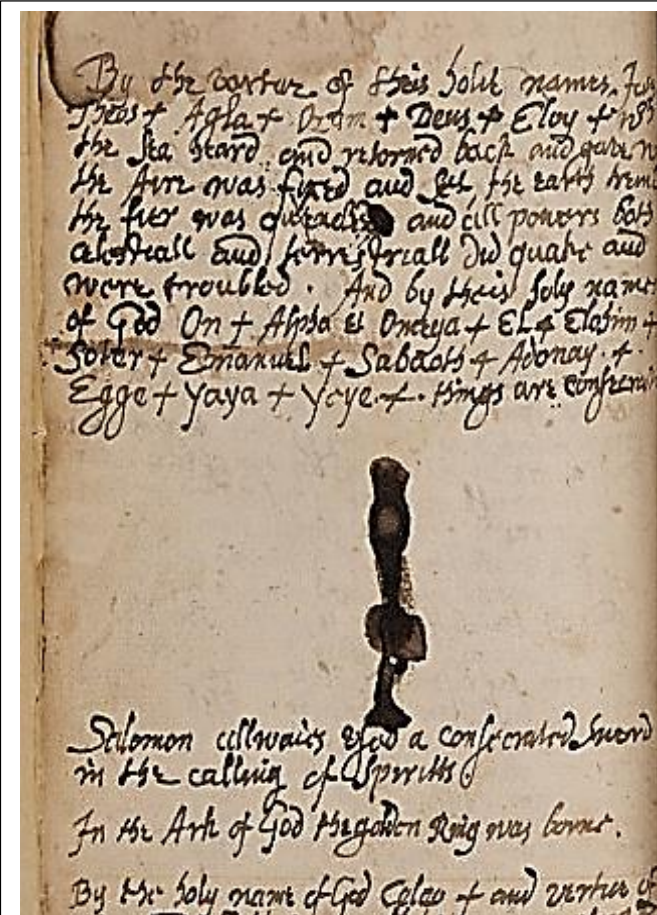 By the vertue of theis holie names,
Theos + Agla + + Deus + Eloy +
the Sea heard and retorned back and gave
the Aire was fixed and the earth
the fier was and all powers both
celestiall and terrestriall did quake and
were troubled. And by theis holy names
of God On + Alpha et Omega + El + Elohim +
Soter + Emanuel + Sabaoth + Adonay. +
Egge + Yaya + Yeye. +. things are
Salomon allwaies a consecrated Sword
in the calling of Spiritts.
In the Ark of God the golden Ring was borne.
By the holy name of God + and vertue of